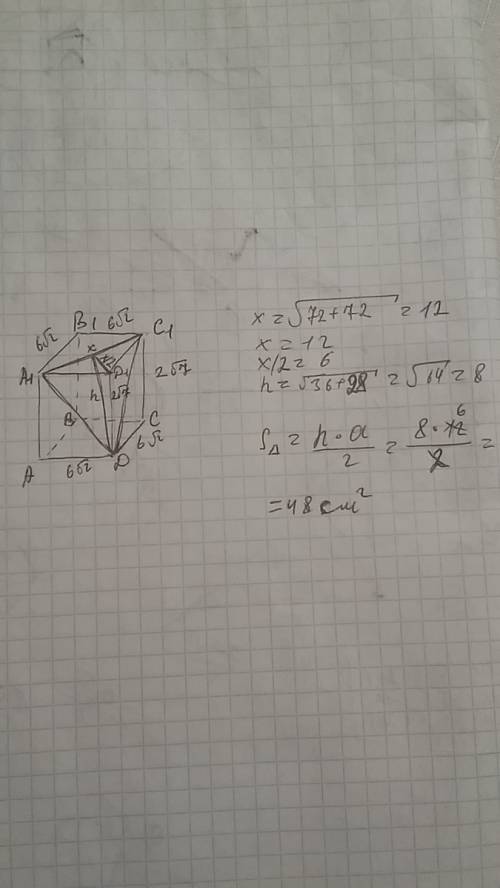 B1 6√2 C1
6√2 x
A1 D1 2√7
h 2√7
B C
6√2
A 6√2 D
x = √72+72 = 12
x = 12
x/2 = 6
h = √36+28 = √64 = 8
S△ = h·a/2 = 8·12/2 =
6
= 48 см²